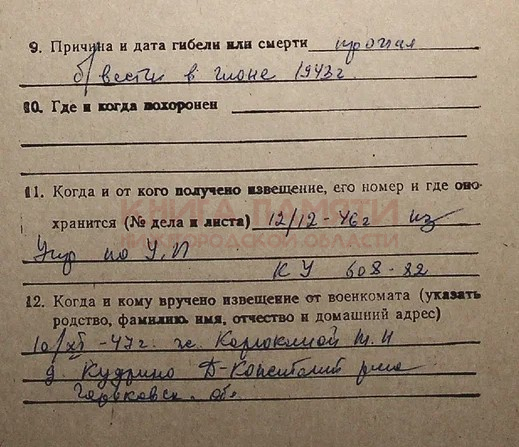 9. Причина и дата гибели или смерти пропал
б/вести в июне 1943 г
10. Где и когда похоронен
11. Когда и от кого получено извещение, его номер и где оно
хранится (№ дела и листа) 12/12-46 г из
КНИГА ПАМЯТИ
НИЖЕГОРОДСКОЙ ОБЛАСТИ
Упр по У.П
КУ 608-82
12. Когда и кому вручено извещение от военкомата (указать
родство, фамилию, имя, отчество и домашний адрес)
10/XI-47 г. ж.
д. Кудрино Д-Константин р-на
Горьковск. обл